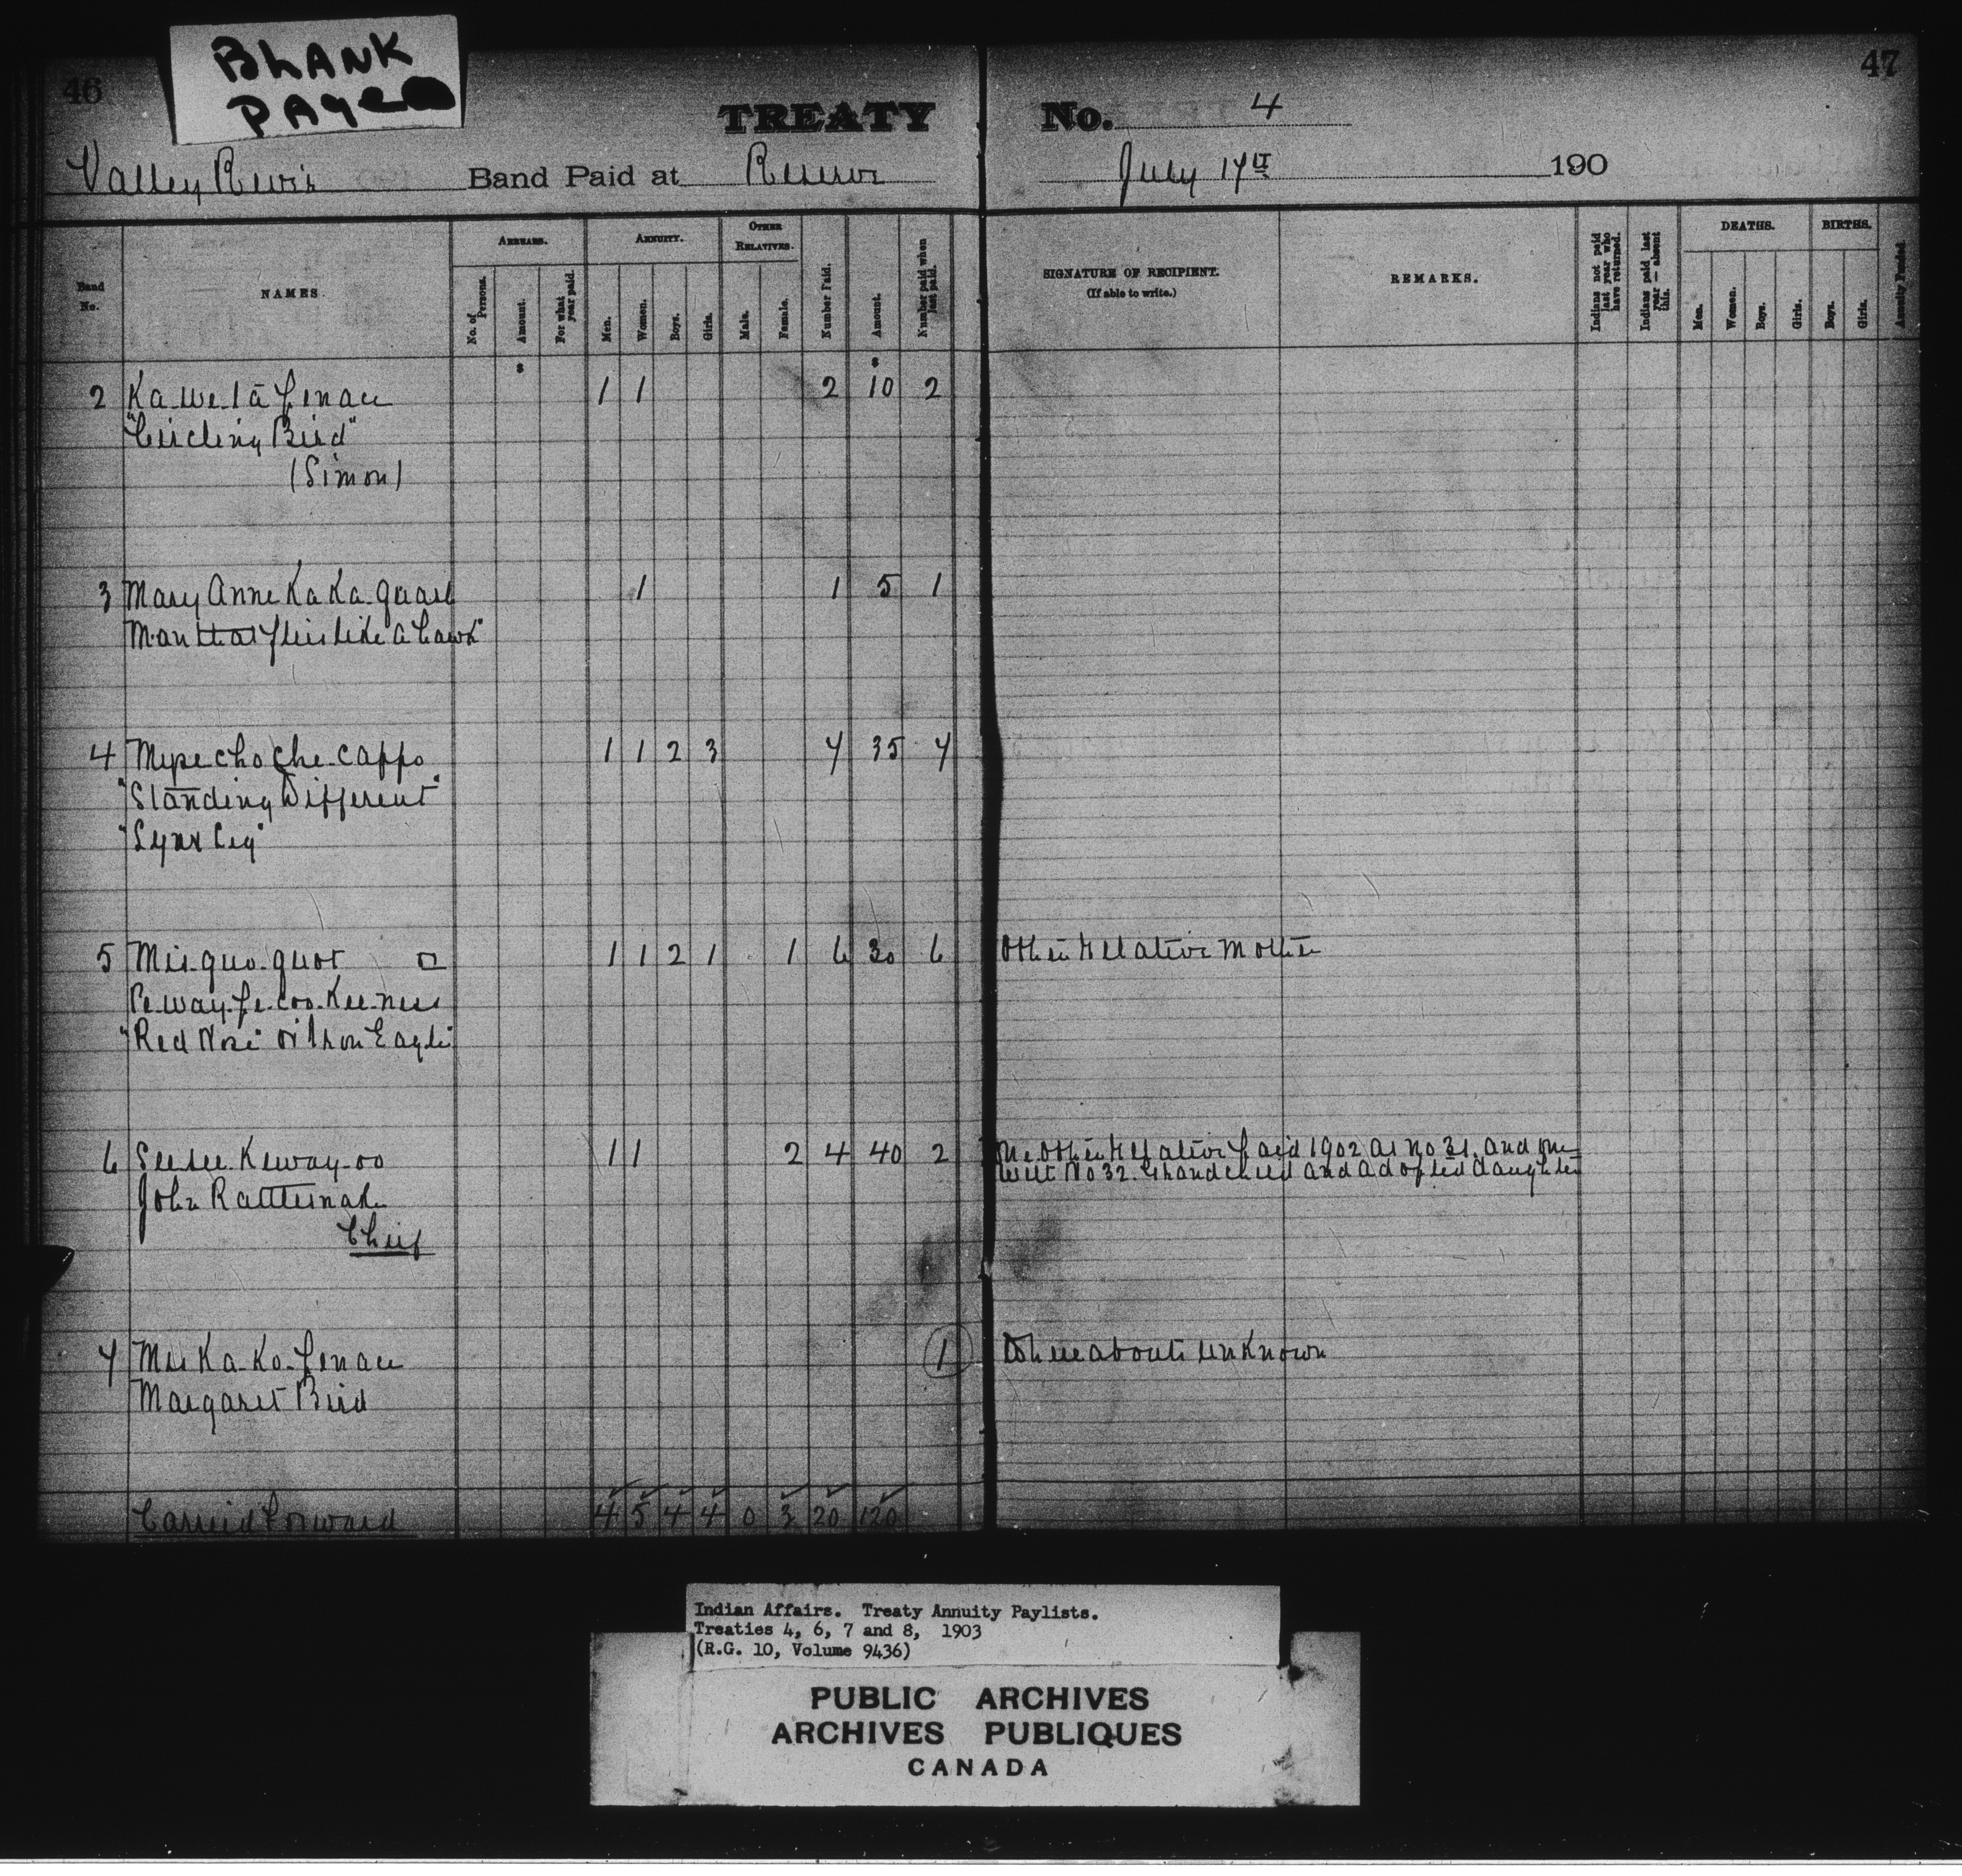 BLANK
PAGE
46
47
TREATY No. 4
Valley River Band Paid at Reserve July 17th 190
Band No.
NAMES.
ARREARS.
No. of Persons.
Amount.
For what year paid.
ANNUITY.
Men.
Women.
Boys.
Girls.
OTHER RELATIVES.
Male.
Female.
Number Paid.
Amount.
Number paid when last paid.
SIGNATURE OF RECIPIENT.
(If able to write.)
REMARKS.
Indians not paid last year who have returned.
Indians paid last year — absent this.
DEATHS.
Men.
Women.
Boys.
Girls.
BIRTHS.
Boys.
Girls.
Annuity Funded.
$ $
2 Ka-we-tā-penace 1 1 2 10 2
"Circling Bird"
(Simon)
3 Mary Anne Ka Ka-quash 1 1 5 1
Man that flies like a hawk"
4 Mepe cho che-cappo 1 1 2 3 7 35 7
"Standing Different"
"Lynx Leg"
5 Mis-quo-quot 1 1 2 1 1 6 30 6 Other Relative Mother
Pe-way-pe-coo-kee-ness
"Red Nose" or Iron Eagle"
6 Seesee-Keway-oo 1 1 2 4 40 2 One Other Relative paid 1902 as No 31. and one
John Rattlesnake with No 32. Grandchild and adopted daughter
Chief
7 Mis Ka-Ko-penace 1 Whereabouts unknown
Margaret Bird
Carried Forward 4 5 4 4 0 3 20 120
Indian Affairs. Treaty Annuity Paylists.
Treaties 4, 6, 7 and 8, 1903
(R.G. 10, Volume 9436)
PUBLIC ARCHIVES
ARCHIVES PUBLIQUES
CANADA